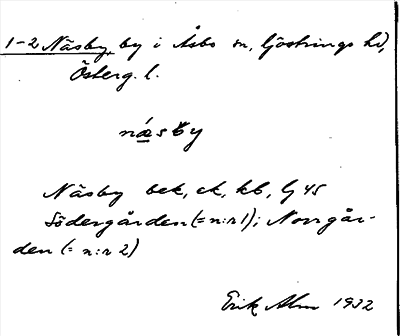 1-2 Näsby, by i Åsbo sn, Göstrings hd,
Österg. l.
näsby
Näsby bek, ek, kb, Gj 45
Södergården (= n:r 1); Norrgår-
den (= n:r 2)
Erik Alm 1932